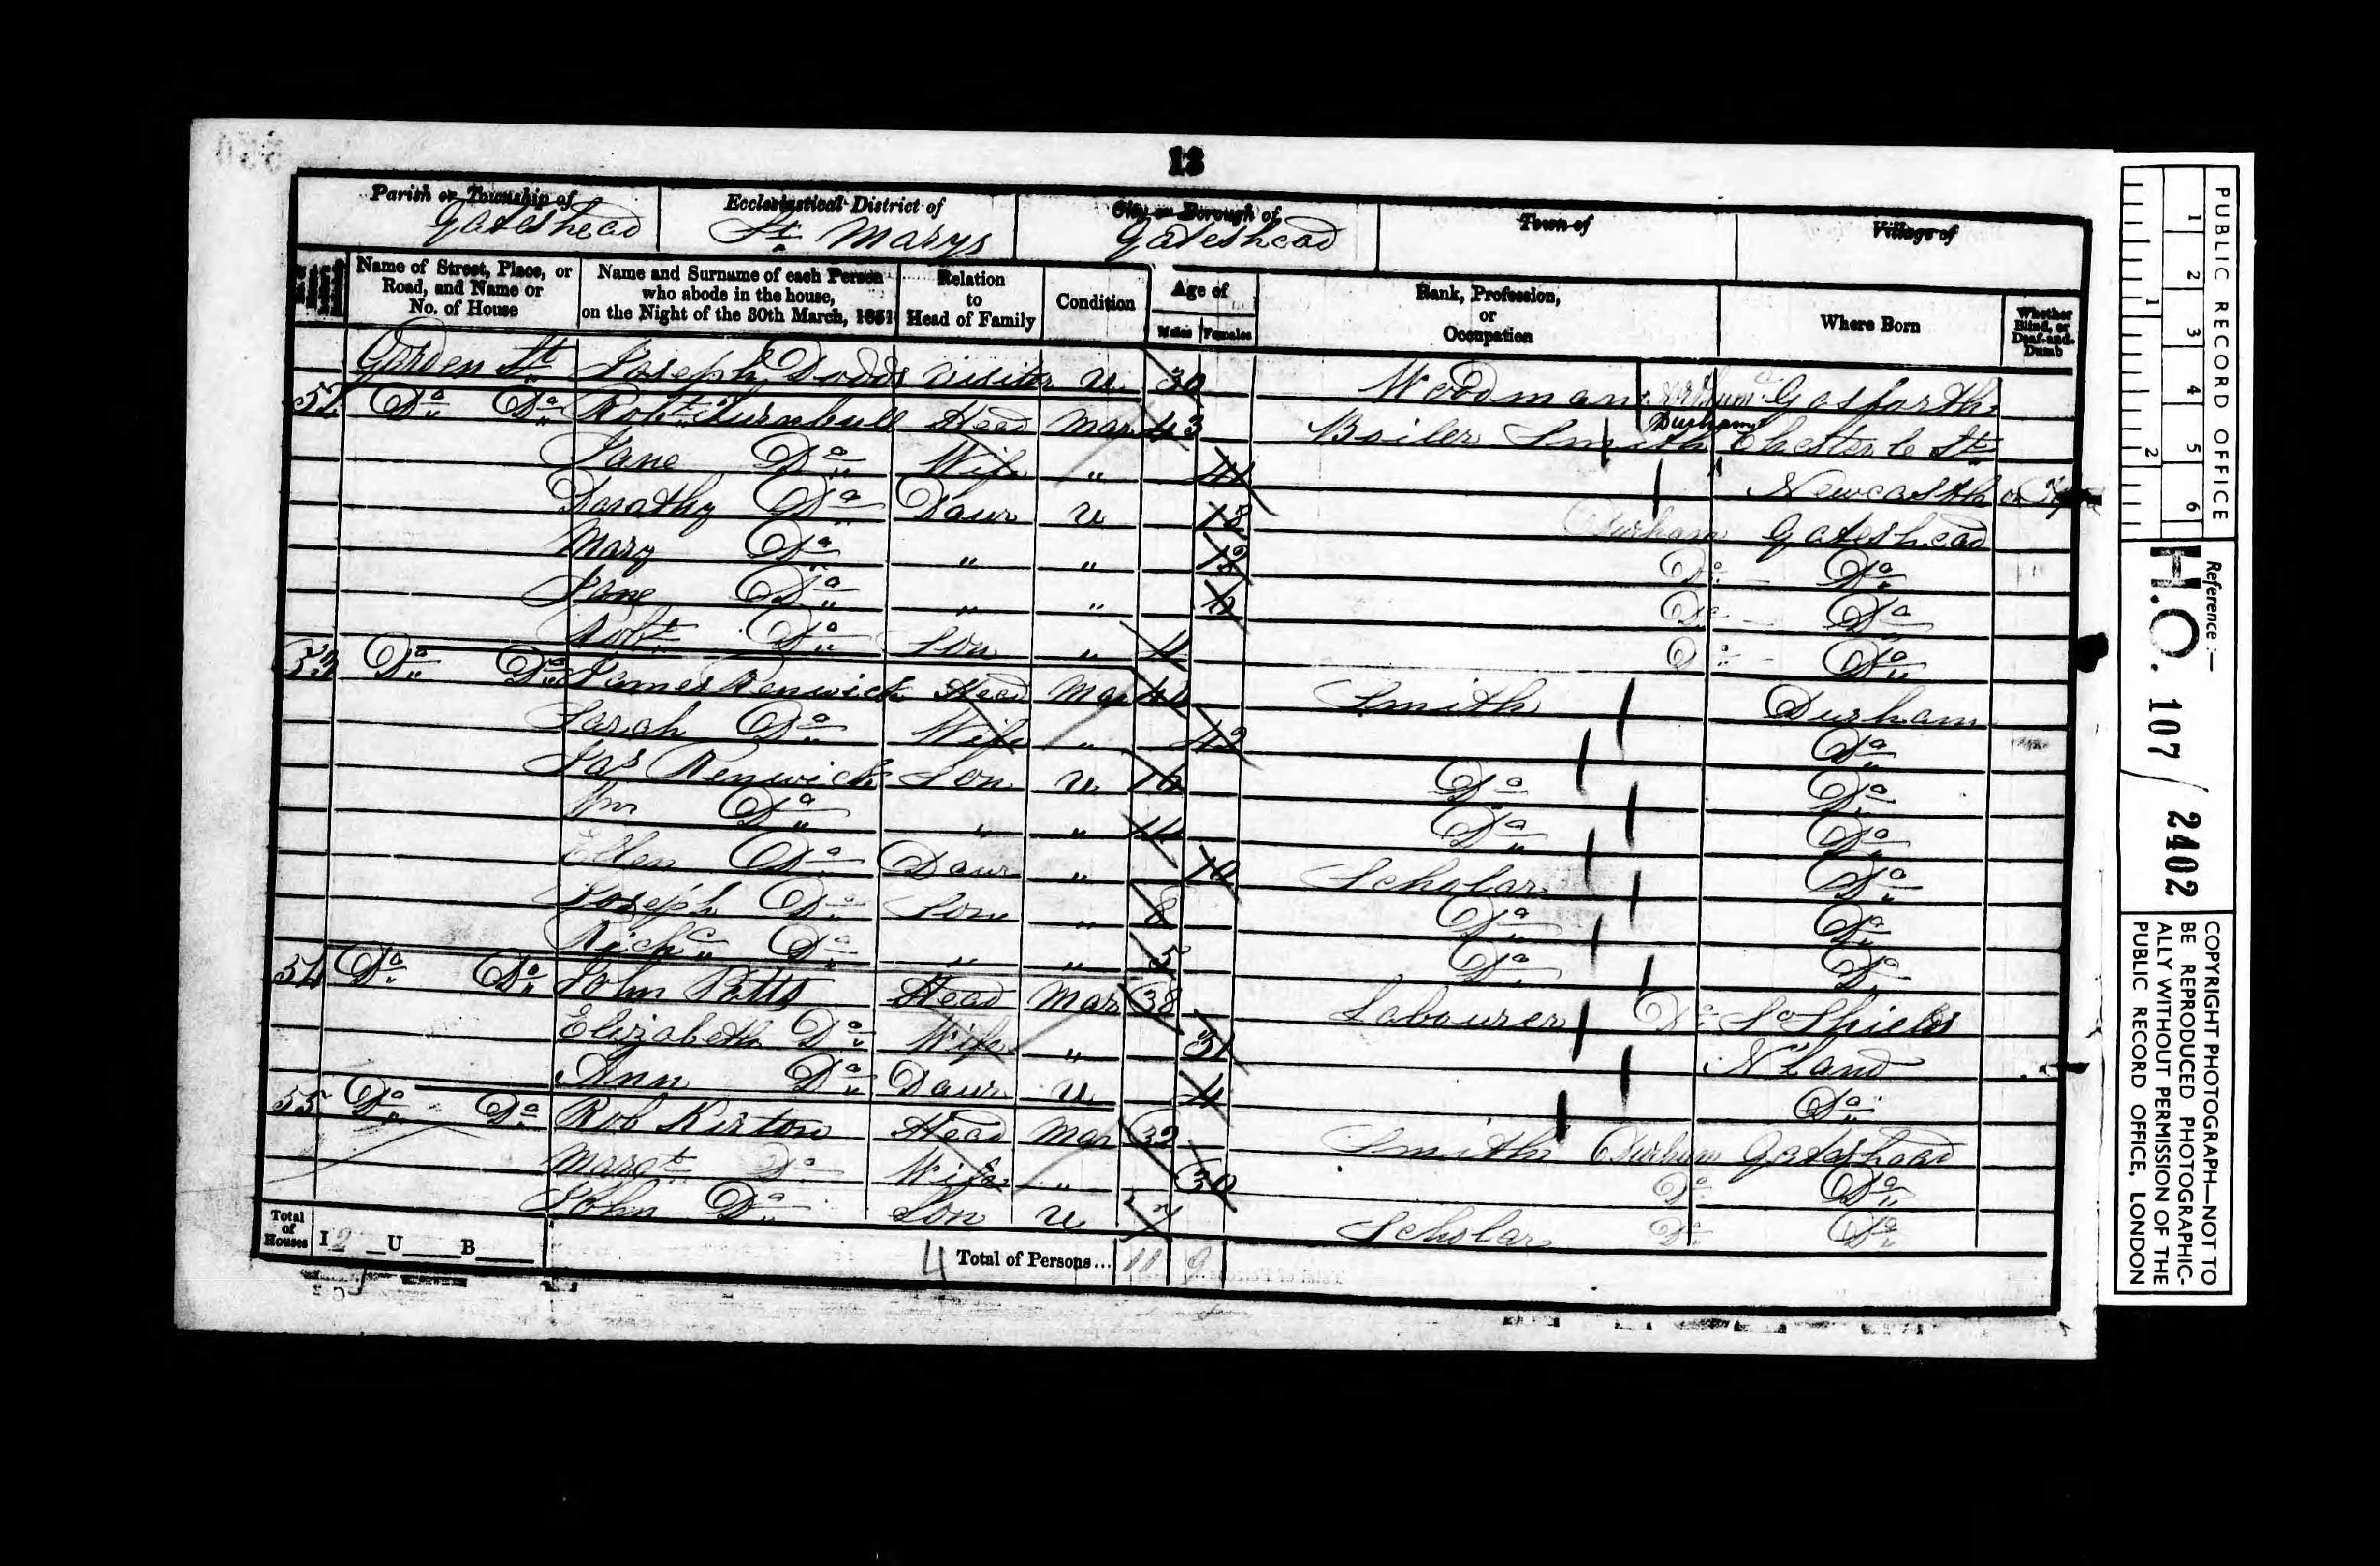 13
Parish or Township of Gateshead
Ecclesiastical District of St Marys
City or Borough of Gateshead
Town of
Village of
Name of Street, Place, or Road, and Name or No. of House
Name and Surname of each Person who abode in the house, on the Night of the 30th March, 1851
Relation to Head of Family
Condition
Age of
Males Females
Rank, Profession, or Occupation
Where Born
Whether Blind, or Deaf-and-Dumb
Garden St Joseph Dodds Visitor U 30 Woodman Gosforth
52 Do Do Robt Turnbull Head Mar 43 Boiler Smith Durham Chester le St
Jane Do Wife " 41 Newcastle on
Dorathy Do Daur U 18 Durham Gateshead
Mary Do " " 12 Do Do
Jane Do " " Do Do
Robt Do Son " 4 Do Do
53 Do Do James Renwick Head Mar Smith Durham
Sarah Do Wife " 42 Do
Jas Renwick Son U 16 Do Do
Wm Do " " 14 Do Do
Ellen Do Daur " 10 Scholar Do
Joseph Do Son " 8 Do Do
Richd Do " " 5 Do Do
54 Do Do John Potts Head Mar 38 Labourer Do So Shields
Elizabeth Do Wife " 31 N Land
Ann Do Daur U 4 Do
55 Do Do Rob Kirton Head Mar 32 Smith Durham Gateshead
Margt Do Wife " 30 Do Do
John Do Son U 7 Scholar Do Do
Total of Houses I 2 U B 4 Total of Persons... 11 9
PUBLIC RECORD OFFICE
1 2 3 4 5 6
1 2
Reference:—
H.O. 107 / 2402
COPYRIGHT PHOTOGRAPH—NOT TO
BE REPRODUCED PHOTOGRAPHIC-
ALLY WITHOUT PERMISSION OF THE
PUBLIC RECORD OFFICE, LONDON